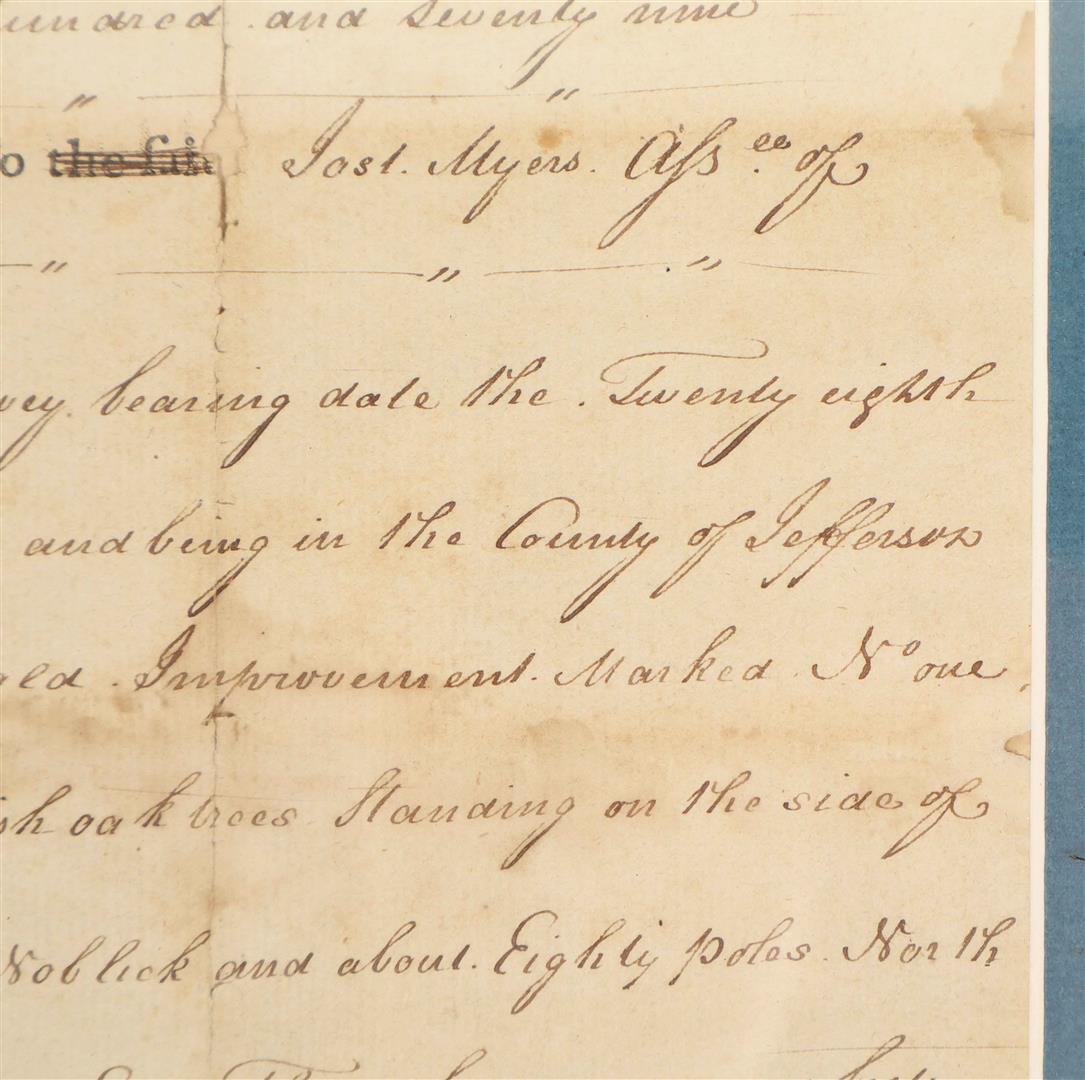 undred and Seventy nine
" "
o the said Jost. Myers. Assee. of
" " "
vey. bearing date the. Twenty eighth
and being in the County of Jefferson
old. Improvement. Marked No one
oak trees Standing on the side of
Noblick and about. Eighty poles. North